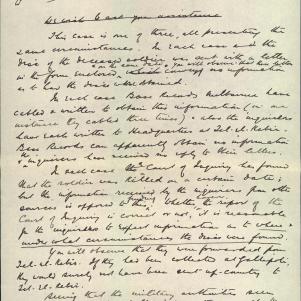 desirable to ask your assistance
This case is one of three, all presenting the
same circumstances. In each case and the
discs of the deceased soldier was sent with a letter
in the form enclosed. You will observe that the letter
as to how the disc was obtained.
In each case Base Records Melbourne have
cabled & written to obtain this information (in one
instance they cabled three times) - also the inquirers
have each written to Headquarters at Tel-el-Kebir.
Base Records can apparently obtain no information
& inquirers have received no reply to their letters.
In each case the Court of Inquiry has found
that the soldier was killed on a certain date;
but the information received by the inquirers from other
sources is opposed to this finding. Whether the report of the
Court of Inquiry is correct or not, it is reasonable
for the inquirers to expect information as to where &
under what circumstances the discs were found.
You will observe that they were forwarded from
Tel-el-Kebir. If they had been collected at Gallipoli,
they would surely not have been sent up country to
Tel-el-Kebir.
Seeing that the military authorities seem